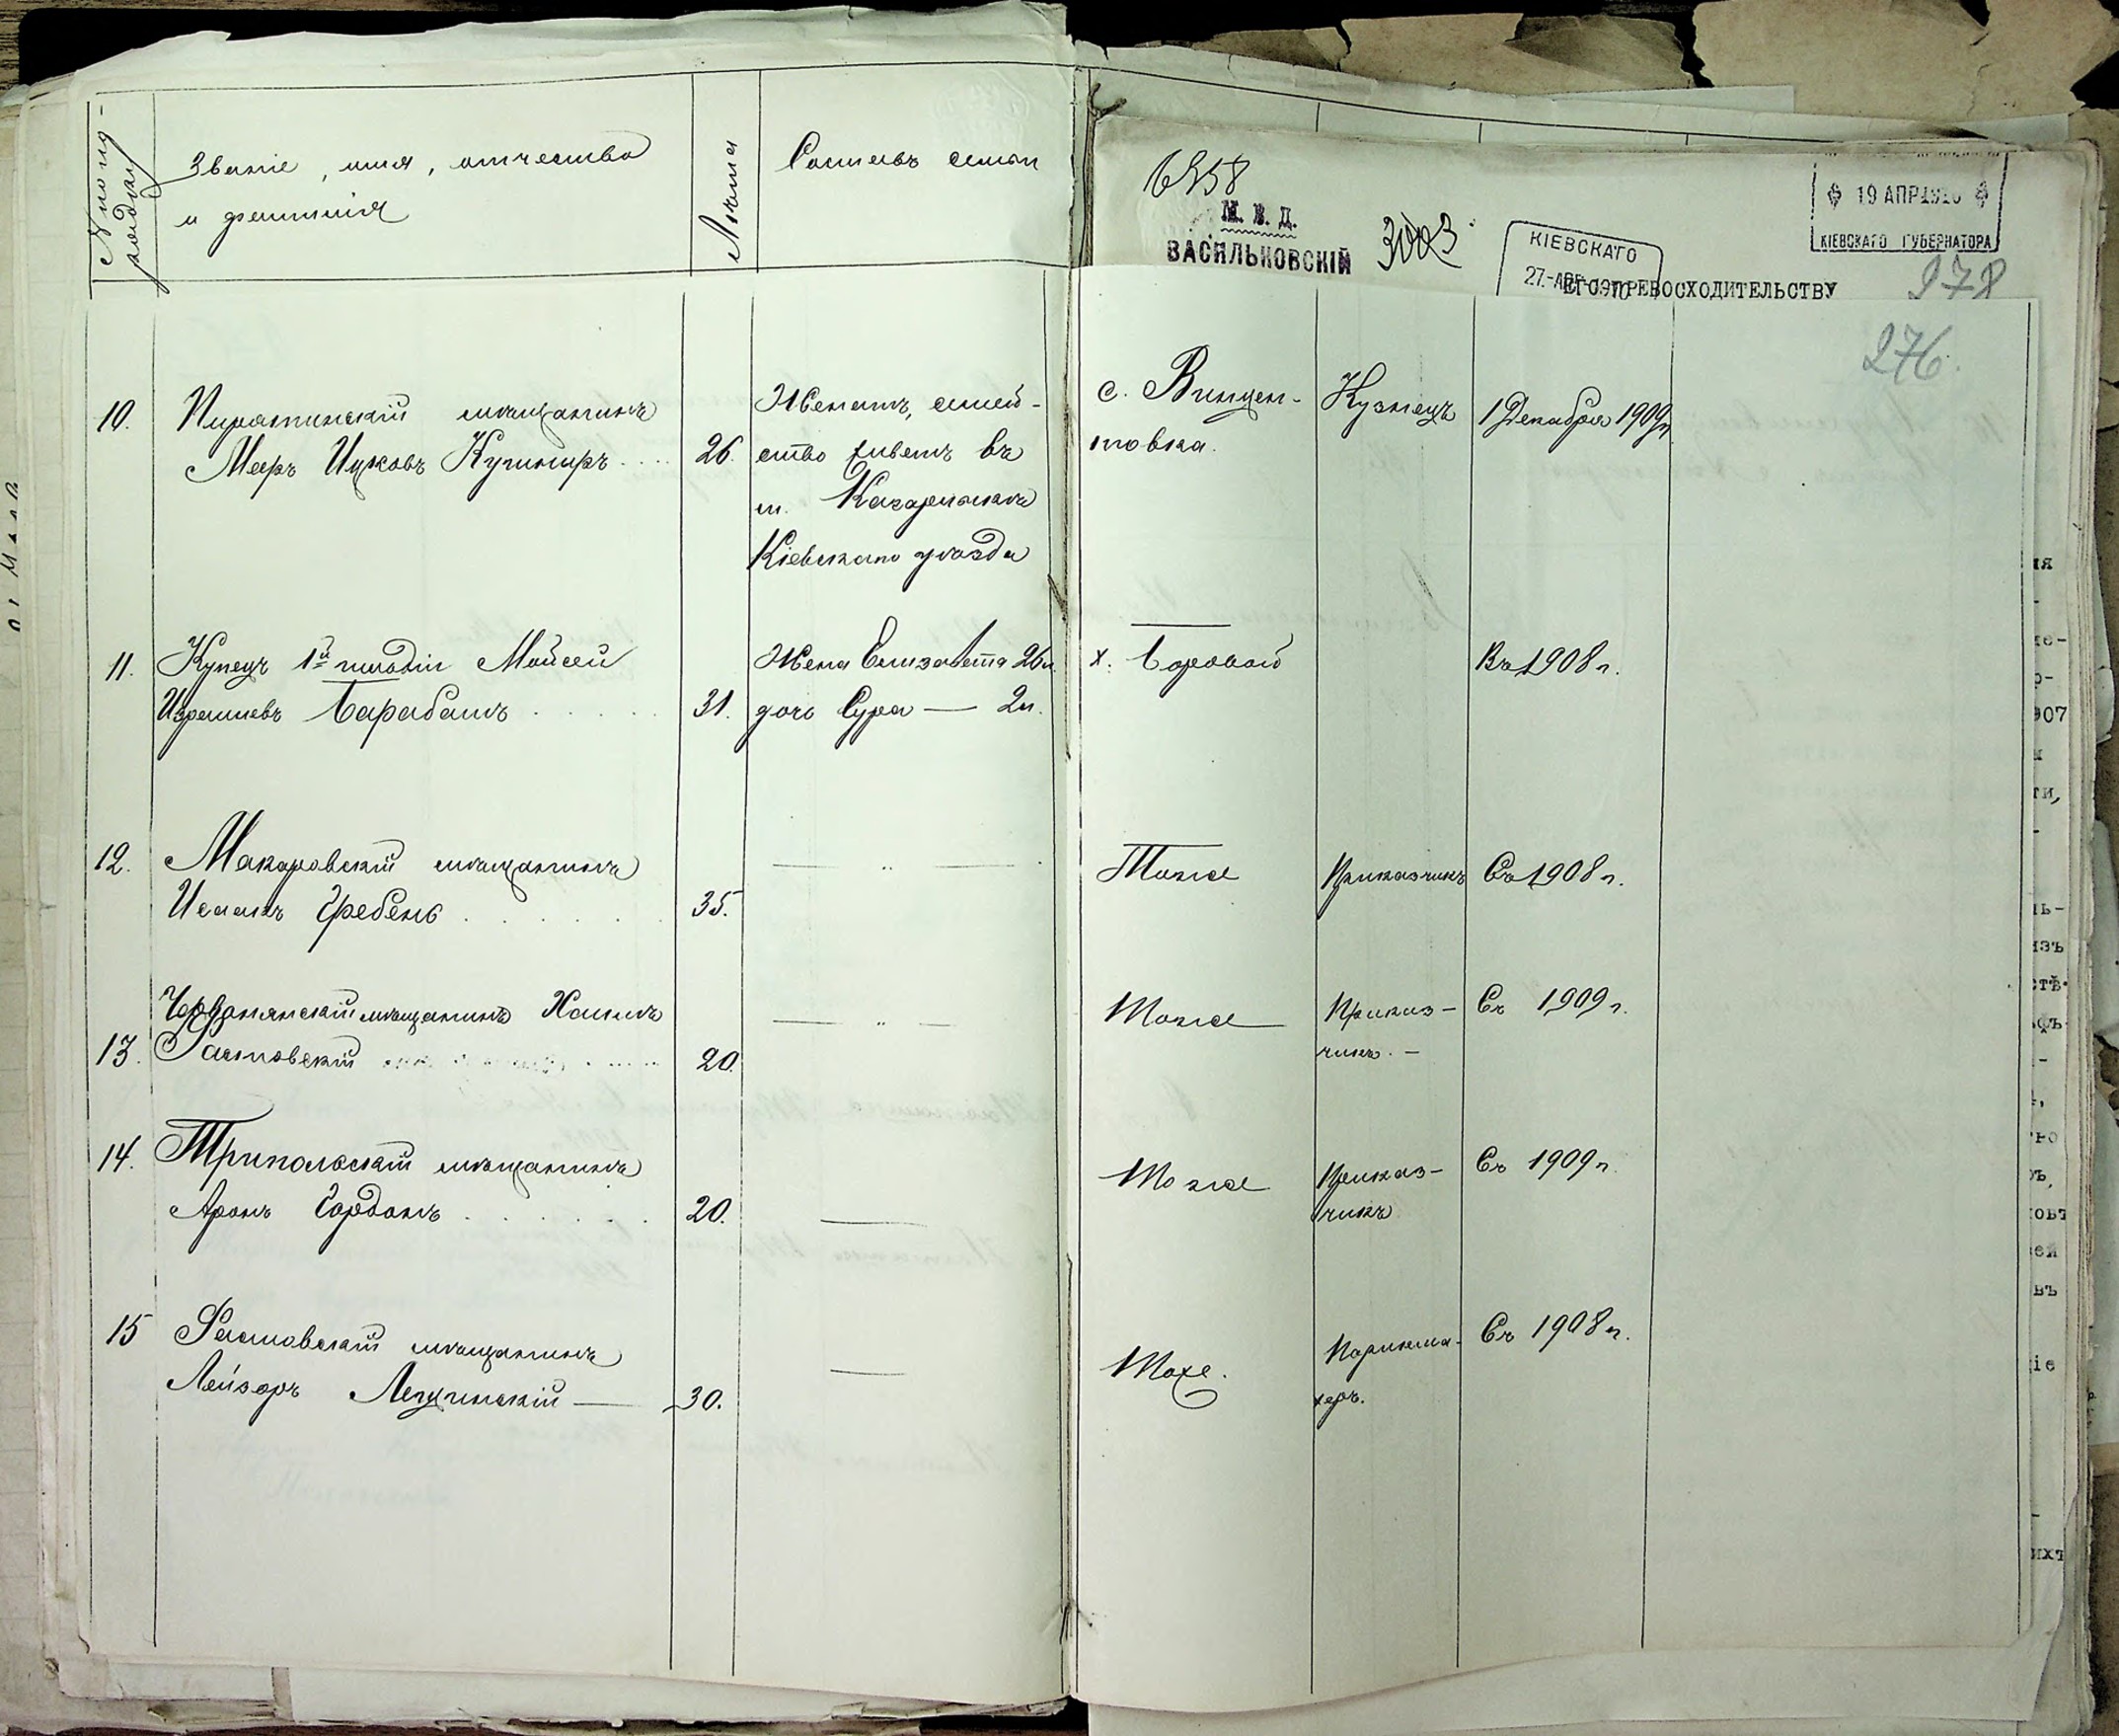 № по по-
рядку
Званіе, имя, отчество
и фамилія
Лѣта
Составъ семьи
6958
М. В. Д.
ВАСИЛЬКОВСКІЙ
3003
КІЕВСКАГО
ЕГО ПРЕВОСХОДИТЕЛЬСТВУ
19 АПР 1910
КІЕВСКАГО ГУБЕРНАТОРА
278
276.
10. Пирятинскій мѣщанинъ
Мееръ Ицковъ Кушниръ 26.
Женатъ, семей-
ство живетъ въ
м. Кагарлыкѣ
Кіевскаго уѣзда
с. Винцен-
товка.
Кузнецъ
1 Декабря 1909 г.
11. Купецъ 1й гильдіи Мойсей
Израилевъ Барабашъ 31.
Жена Елизавета 26 л.
дочь Сура — 2 л.
х. Боровой
Въ 1908 г.
12. Макаровскій мѣщанинъ
Исаакъ Гребень 35.
— „ —
Тоже
Приказчикъ
Съ 1908 г.
мѣщанинъ Хаимъ
13. 20.
— „ —
Тоже
Приказ-
чикъ. —
Съ 1909 г.
14. Трипольскій мѣщанинъ
Аронъ Гордонъ 20.
—
Тоже
Приказ-
чикъ
Съ 1909 г.
15 Фастовскій мѣщанинъ
Лейзоръ Лещинскій — 30.
—
Тоже.
Парикма-
херъ.
Съ 1908 г.
ія
907
ти,
ль-
изъ
стѣ-
ей
въ
ихъ